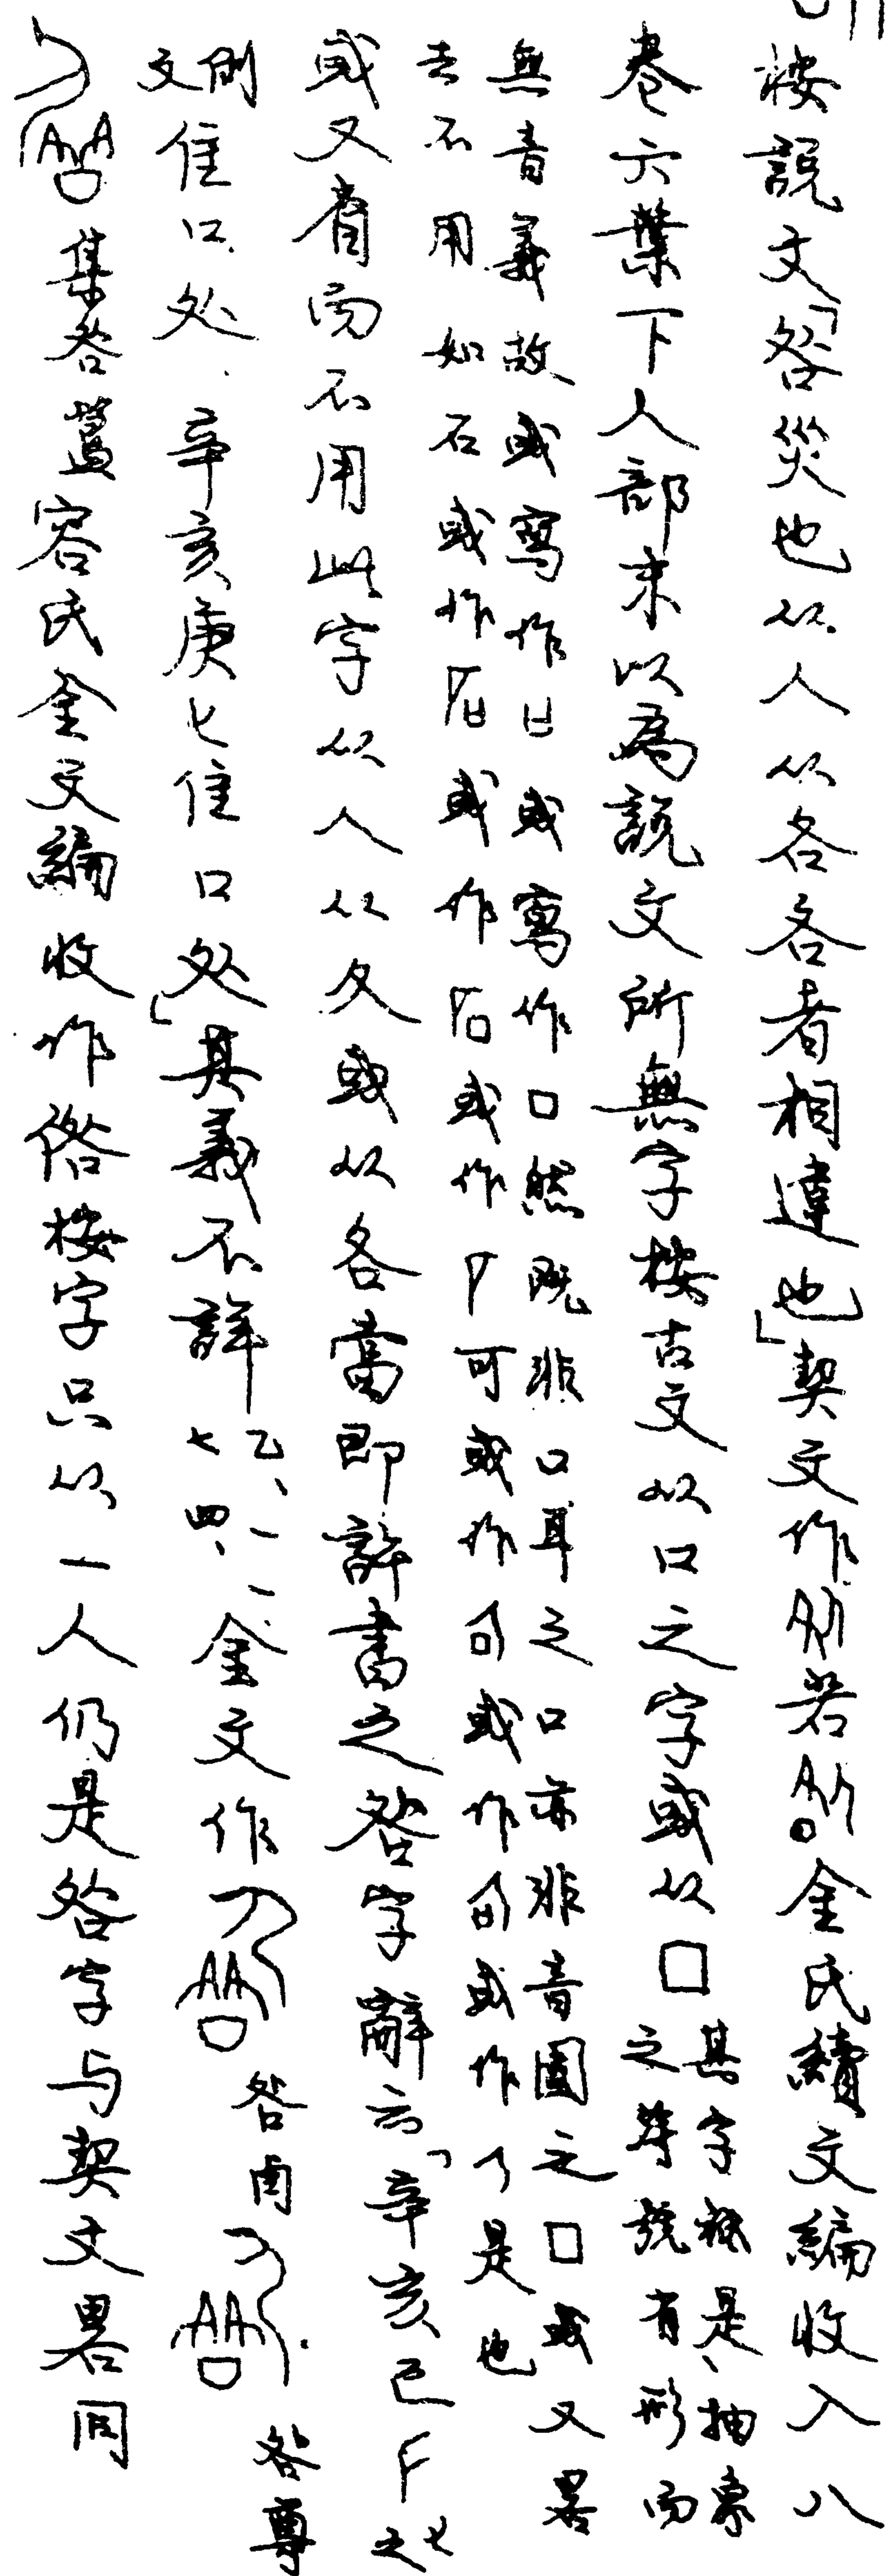 按說文「咎災也从人从各各者相違也」契文作若金氏續文編收入八
卷六葉下人部末以為說文所無字按古文从口之字或从口
其字祇是、抽象
之符號有形而
無音義故或寫作凵或寫作口然既非口耳之口亦非音圍之囗或又畧
去不用如石或作或作或作可或作或作或作是也
或又省而不用此字从人从夂或从各當即許書之咎字辭云「辛亥已之七
側
文隹口処、辛亥庚七隹口処」其義不詳
乙、一一
七四、
金文作
咎卣
咎尊
集咎簋容氏金文編收作㑻按字只从一人仍是咎字与契文畧同